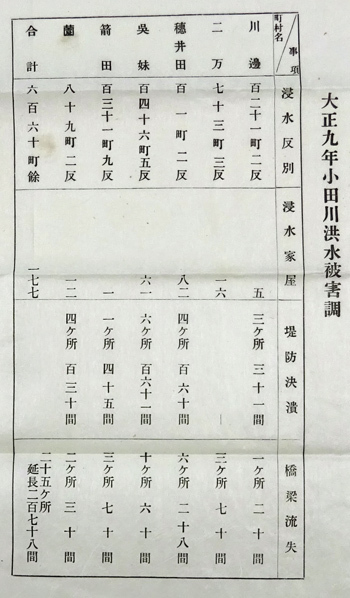 大正九年小田川洪水被害調
事項 町村名 浸水反別 浸水家屋 堤防決潰 橋梁流失
川邊 百二十一町二反 五 三ヶ所 三十一間 一ヶ所 二十間
二万 七十三町三反 一六 ― 三ヶ所 七十間
穂井田 百一町二反 八二 四ヶ所 百六十間 六ヶ所 二十八間
呉妹 百四十六町五反 六一 六ヶ所 百六十一間 十ヶ所 六十間
箭田 百三十一町九反 一 一ヶ所 四十五間 三ヶ所 七十間
薗 八十九町二反 一二 四ヶ所 百三十間 二ヶ所 三十間
合計 六百六十町餘 一七七 二十五ヶ所
延長二百七十八間